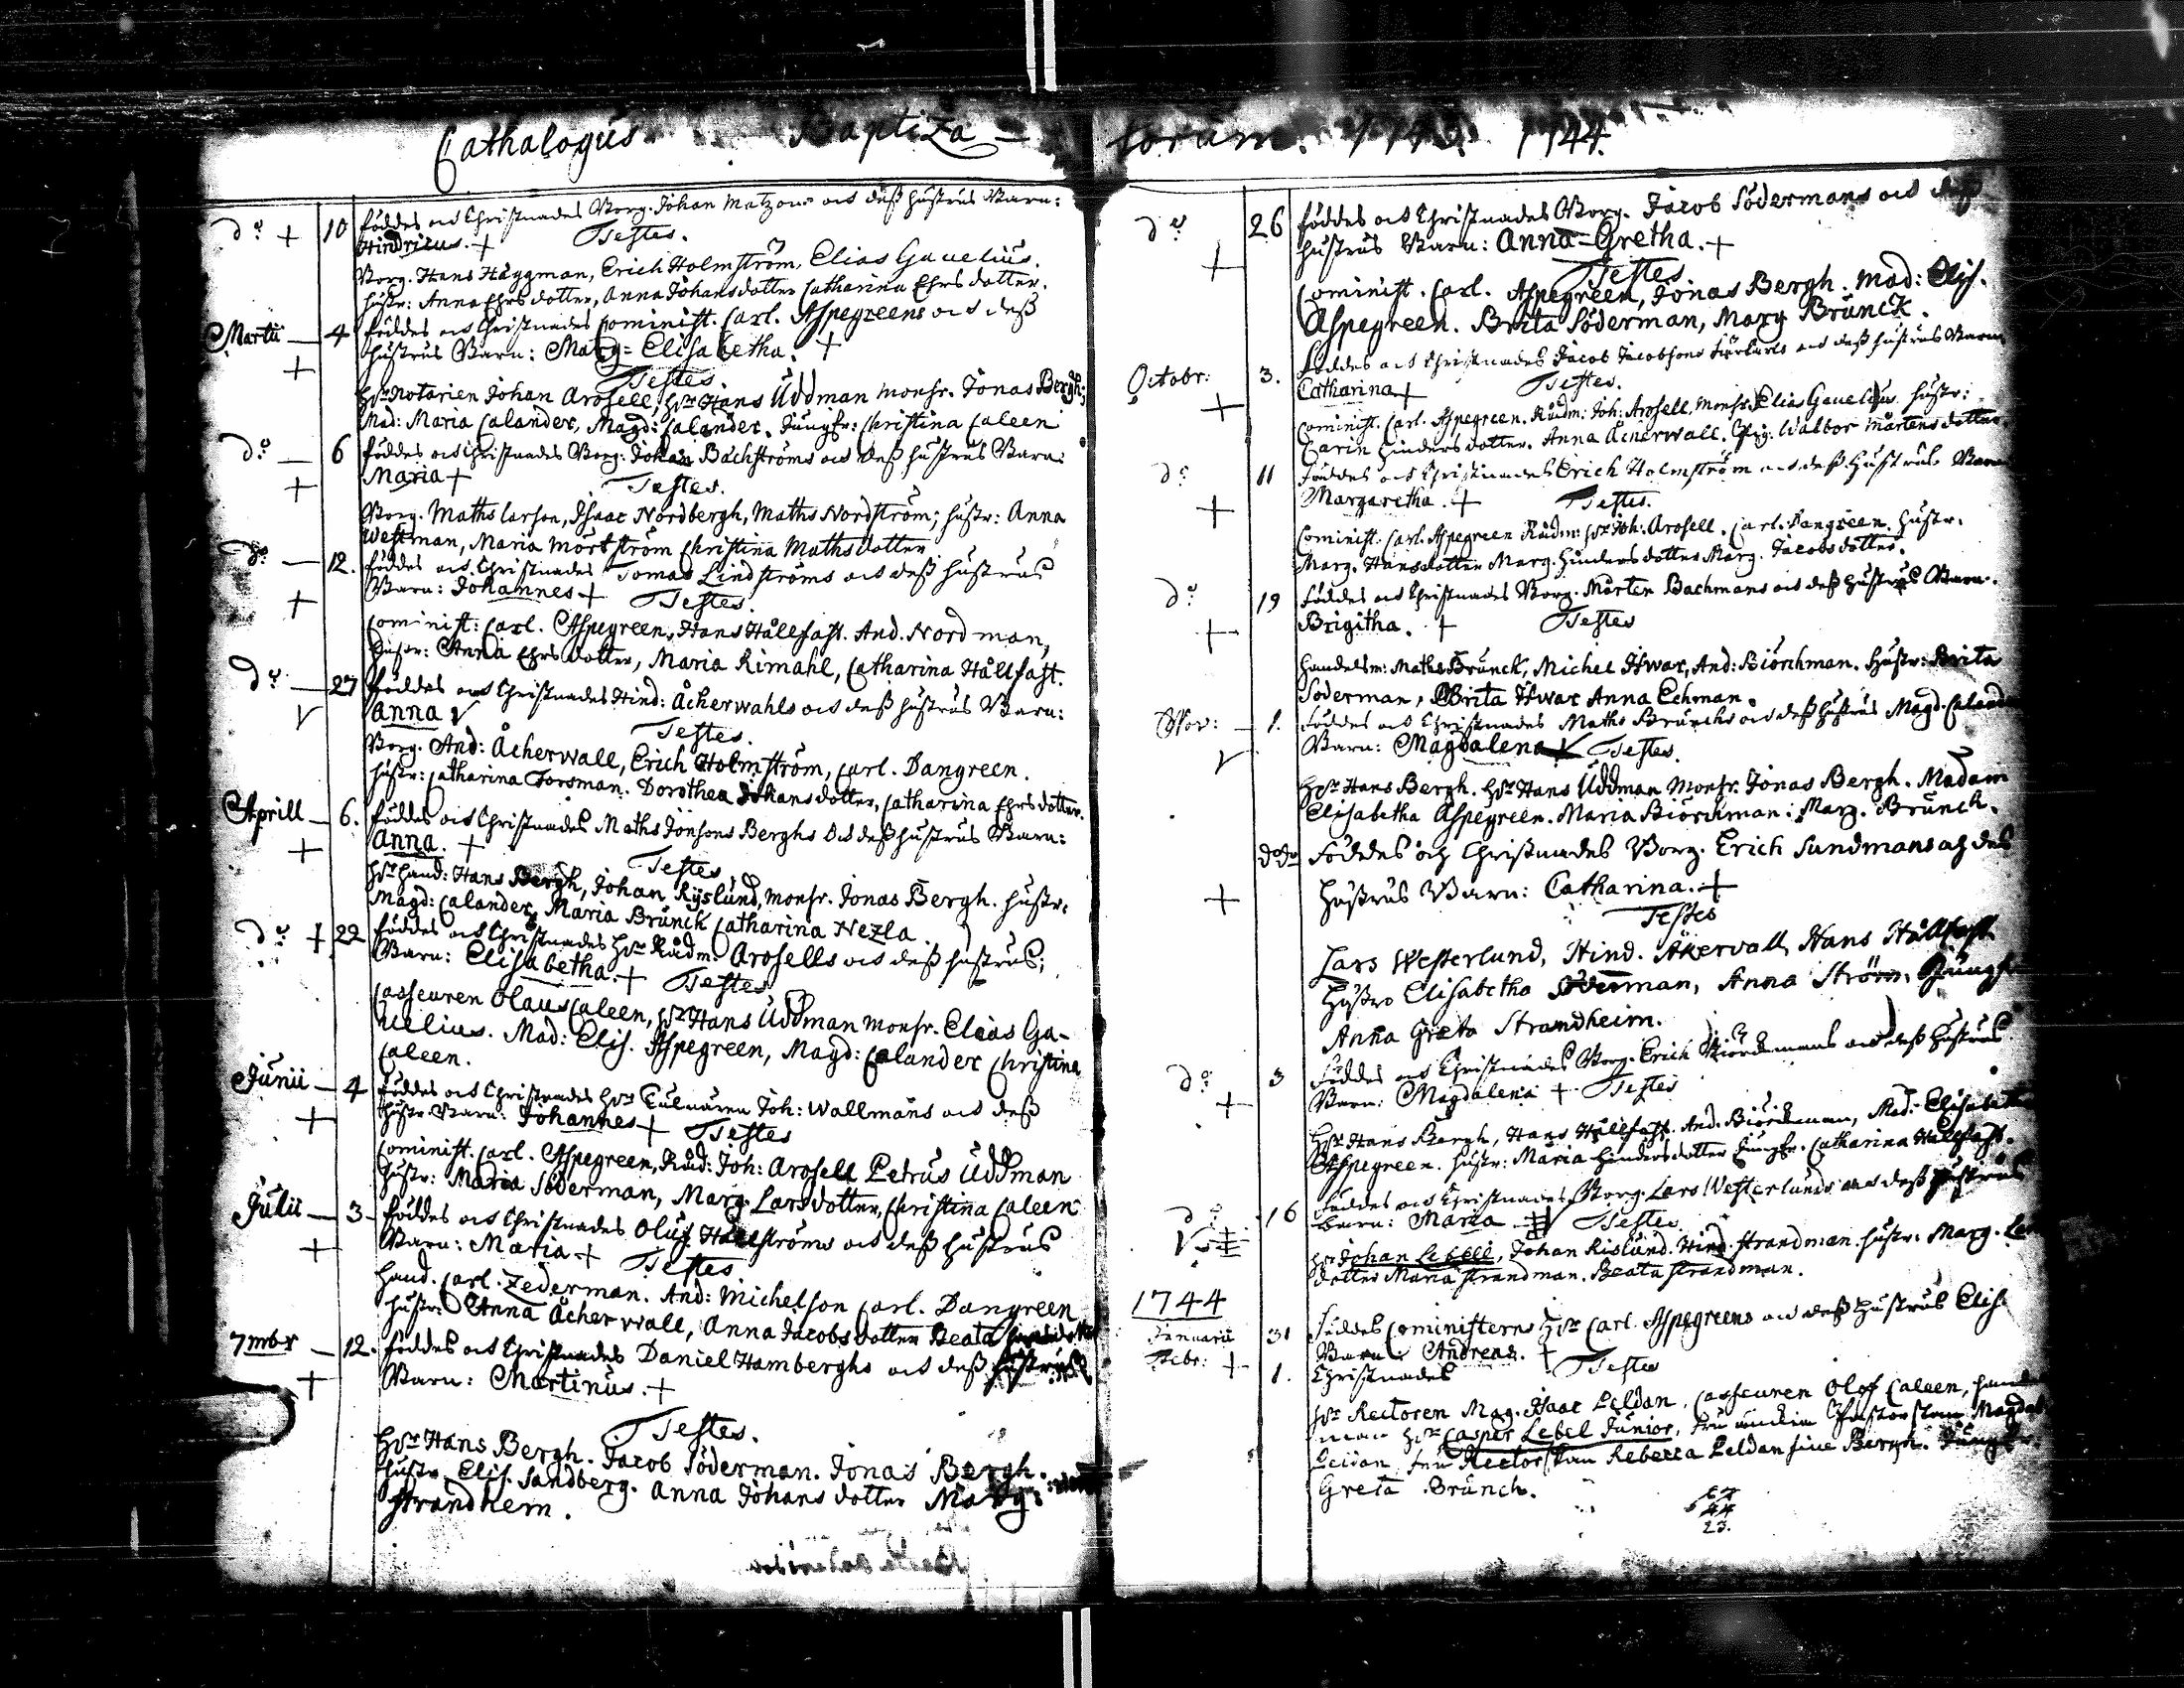 Cathalogus Baptiza-
torum. 1743. 1744.
do + 10 föddes och Christnades Borg. Johan Matzons och deß hustrus Barn:
Hindricus. + Testes.
Borg. Hans Häggman, Erich Holmström, Elias Gavelius.
hustr: Anna Ehrs dotter, Anna Johansdotter Catharina Ehrs dotter.
Martii — 4 föddes och Christnades Cominist. Carl. Aspegreens och deß
+ hustrus Barn: Marg= Elisabetha. +
Testes
Hr Notarien Johan Arosell, Hr Hans Uddman Monsr. Jonas Bergh;
Mad: Maria Calander, Magd: Calander. Jungfr: Christina Caleen
do — 6 föddes och Christnades Borg: Johan Bachströms och deß hustrus Barn:
+ Maria + Testes.
Borg. Maths Larson, Isaac Nordbergh, Maths Nordström; hustr: Anna
Westman, Maria Mörtström Christina Mathsdotter
do — 12. föddes och Christnades Tomas Lindströms och deß hustrus
+ Barn: Johannes + Testes.
Cominist: Carl. Aspegreen, Hans Hållfast. And. Nordman,
hustr: Anna Ehrs dotter, Maria Rimahl, Catharina Hållfast.
do — 27 föddes och Christnades Hind: Åcherwahls och deß hustrus Barn:
V Anna V Testes.
Borg. And: Åcherwall, Erich Holmström, Carl. Dangreen.
hustr: Catharina Forsman. Dorothea Johansdotter, Catharina Ehrs dotter.
Aprill — 6. föddes och Christnades Maths Jonsons Berghs och deß hustrus Barn:
+ Anna. + Testes
Hr hand: Hans Bergh, Johan Ryslund, Monsr. Jonas Bergh. hustr:
Magd: Calander, Maria Brunck Catharina Nezla
do + 22 föddes och Christnades Hr Rådm: Arosells och deß hustrus;
Barn: Elisabetha. + Testes
Casseuren Olaus Caleen, Hr Hans Uddman Monsr. Elias Ga-
velius. Mad: Elis. Aspegreen, Magd: Calander Christina
Caleen.
Junii — 4 föddes och Christnades Hr Joh: Wallmans och deß
+ hustr. Barn: Johannes + Testes
Cominist. Carl. Aspegreen, Råd: Joh: Arosell Petrus Uddman
hustr: Maria Söderman, Marg. Larsdotter, Christina Caleen
Julii — 3 föddes och Christnades Oluf Hällströms och deß hustrus
+ Barn: Maria + Testes
Hand. Carl. Zederman. And: Michelson Carl. Dangreen
hustr: Anna Åcherwall, Anna Jacobsdotter Beata
7mbr — 12. föddes och Christnades Daniel Hamberghs och deß hustrus
+ Barn: Martinus. +
Testes.
Hr Hans Bergh. Jacob Söderman. Jonas Bergh.
hustr. Elis. Sandberg. Anna Johans dotter Marg:
Strandhem.
do 26 föddes och Christnades Borg. Jacob Södermans och deß
+ hustrus Barn: Anna=Gretha. +
Testes
Cominist. Carl. Aspegreen, Jonas Bergh. Mad: Elis.
Aspegreen. Brita Söderman, Marg Brunck.
Octobr: 3. föddes och Christnades Jacob Jacobsons och deß hustrus Barn
+ Catharina + Testes.
Cominist. Carl. Aspegreen. Rådm: Joh: Arosell, Monsr. Elias Gavelius. hustr:
Carin Hindersdotter. Anna Åcherwall. Pig. Walbor Mårtensdotter.
do 11 föddes och Christnades Erich Holmström och deß hustrus Barn
+ Margaretha. + Testes.
Cominist. Carl. Aspegreen Rådm: Hr Joh: Arosell. Carl. Dangreen. hustr.
Marg. Hansdotter Marg. Hindersdotter Marg. Jacobsdotter.
do 19 föddes och Christnades Borg. Mårten Bachmans och deß hustrus Barn.
+ Brigitha. + Testes
Handelsm: Maths Brunck, Michel Hwar, And: Biörchman. Hustr: Brita
Söderman, Brita Hwar Anna Echman.
Nov: — 1. föddes och Christnades Maths Brunchs och deß hustrus Magd. Caland
V Barn: Magdalena V Testes.
Hr Hans Bergh. Hr Hans Uddman Monsr. Jonas Bergh. Madam
Elisabetha Aspegreen. Maria Biörchman: Marg. Brunch.
dodo föddes och Christnades Borg. Erich Sundmans och des
+ Hustrus Barn: Catharina. +
Testes
Lars Westerlund, Hind. Åkervall, Hans Hållfast
Hustro Elisabetha Söderman, Anna Ström, Jungfr
Anna Greta Strandheim.
do 3 föddes och Christnades Borg. Erich Biörckmans och deß hustrus
+ Barn: Magdalena + Testes
Hr Hans Bergh, Hans Hållfast. And. Biörckman, Mad: Elisabetha
Aspegreen. hustr: Maria Hindersdotter Jungfr. Catharina Hållfast.
do 16 föddes och Christnades Borg. Lars Westerlunds och deß hustrus
V Barn: Maria Testes
Hr Johan Lebell, Johan Rislund. Hind. Strandman. hustr: Marg. Lar
dotter Maria Strandman. Beata Strandman.
1744
Januarii 31 föddes Cominsterns Hr Carl. Aspegreens och deß Hustrus Elis.
Barn: Andreas. +
Febr: + 1. Christnades Testes
Hr Rectoren Mag. Isaac Peldan, Casseuren Olof Caleen, hand
Hr Casper Lebel Junior, Magdal
fru Rectorskan Rebecca Peldan sive Bergh. Jungfr.
Greta Brunch.
44
23.